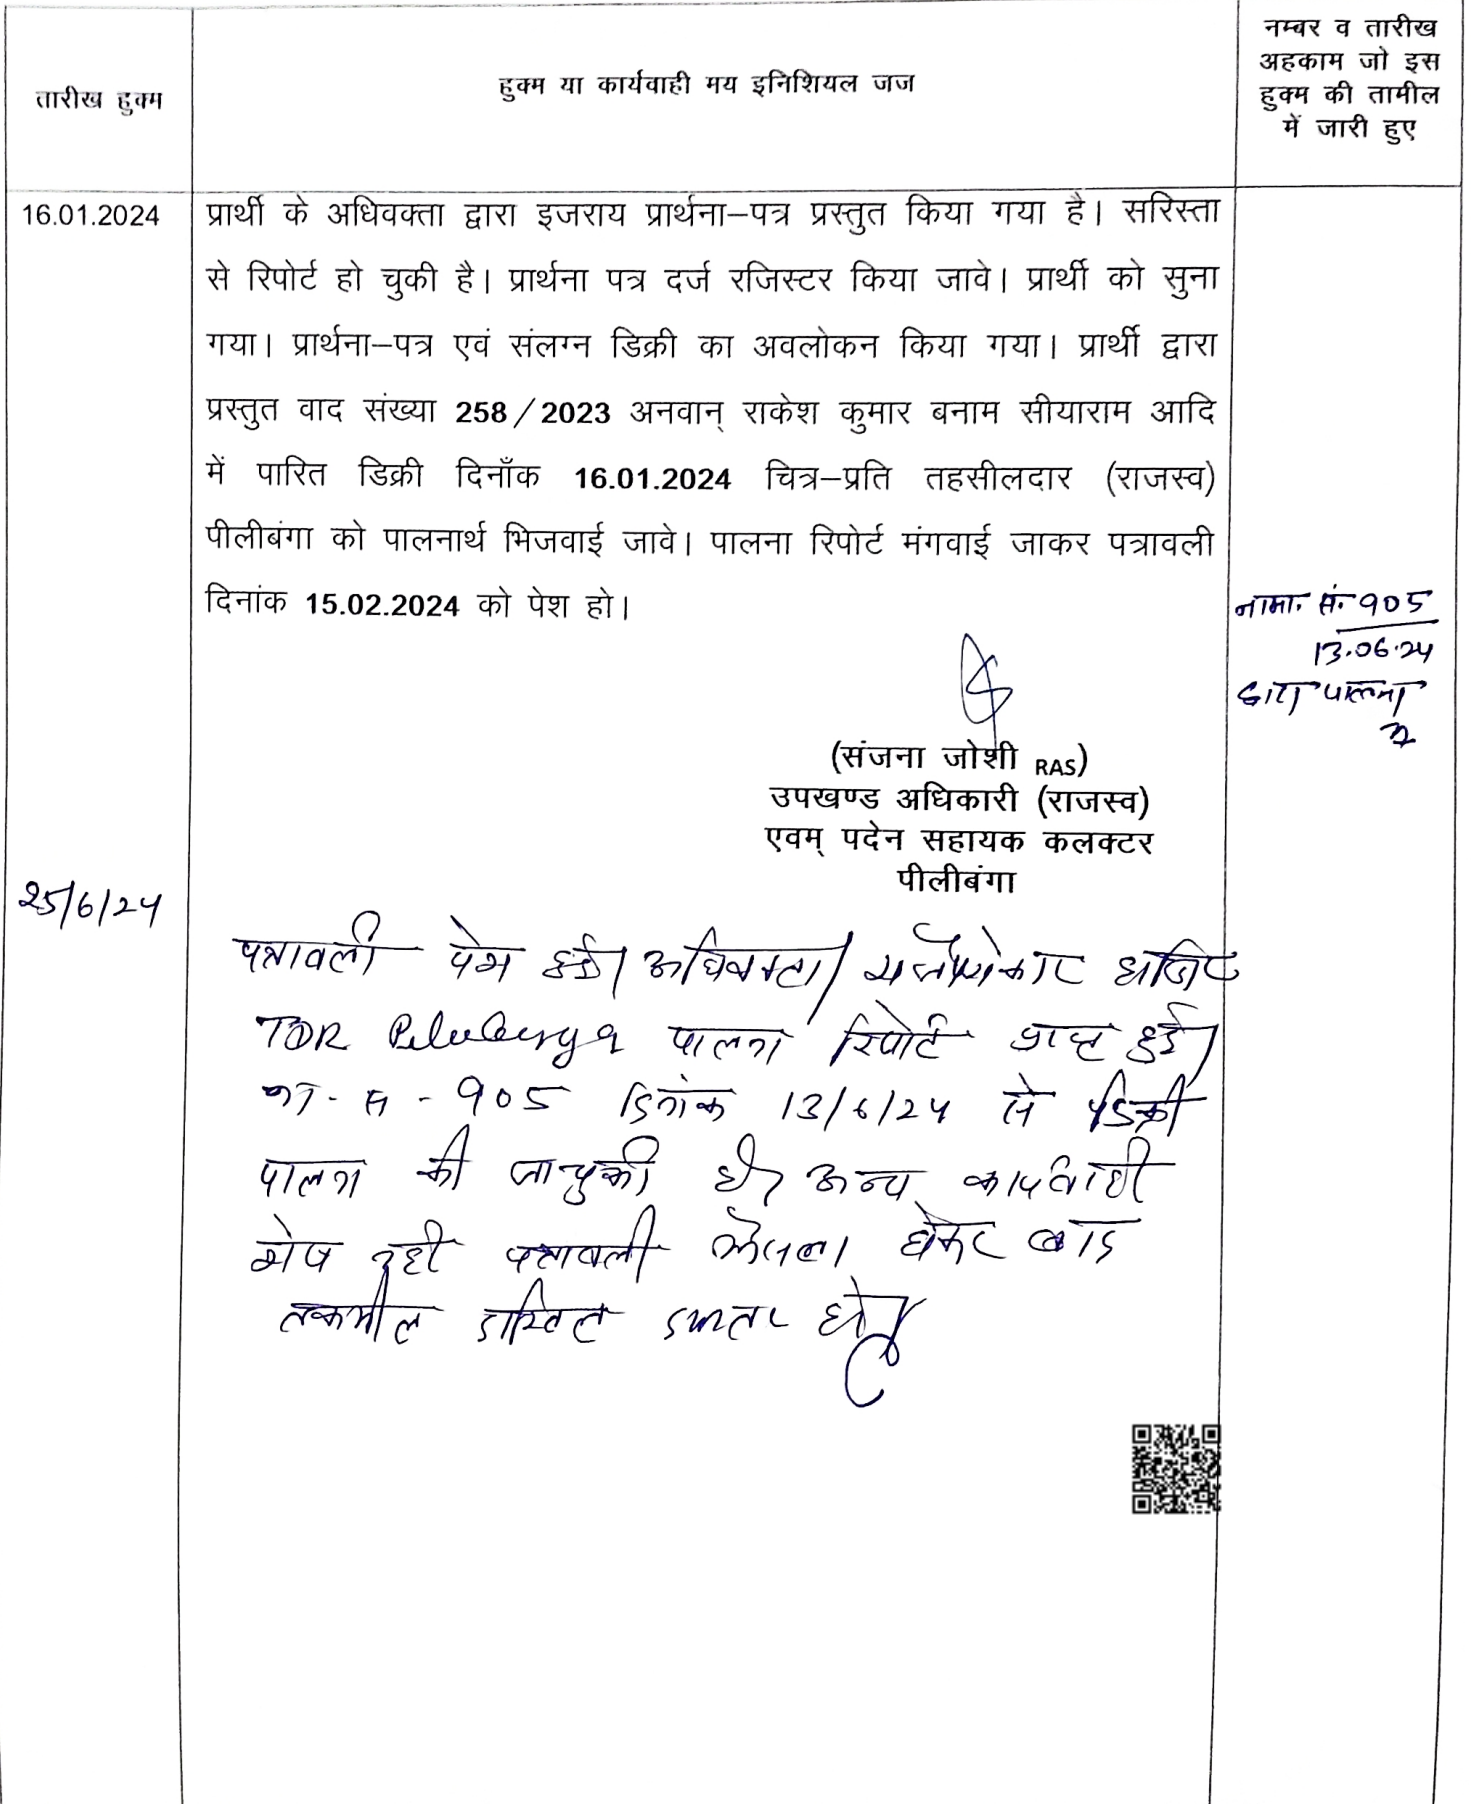 तारीख हुक्म
हुक्म या कार्यवाही मय इनिशियल जज
नम्बर व तारीख
अहकाम जो इस
हुक्म की तामील
में जारी हुए
16.01.2024
प्रार्थी के अधिवक्ता द्वारा इजराय प्रार्थना–पत्र प्रस्तुत किया गया है। सरिस्ता
से रिपोर्ट हो चुकी है। प्रार्थना पत्र दर्ज रजिस्टर किया जावे। प्रार्थी को सुना
गया। प्रार्थना–पत्र एवं संलग्न डिक्री का अवलोकन किया गया। प्रार्थी द्वारा
प्रस्तुत वाद संख्या 258/2023 अनवान् राकेश कुमार बनाम सीयाराम आदि
में पारित डिक्री दिनाँक 16.01.2024 चित्र–प्रति तहसीलदार (राजस्व)
पीलीबंगा को पालनार्थ भिजवाई जावे। पालना रिपोर्ट मंगवाई जाकर पत्रावली
दिनांक 15.02.2024 को पेश हो।
नामा. सं. 905
13.06.24
द्वारा पालना
(संजना जोशी RAS)
उपखण्ड अधिकारी (राजस्व)
एवम् पदेन सहायक कलक्टर
पीलीबंगा
25/6/24
पत्रावली पेश हुई। अधिवक्ता
TDR पालना रिपोर्ट प्राप्त हुई।
905 दिनांक 13/6/24 से डिक्री
पालना की जा चुकी है। अन्य कार्यवाही
शेष नही पत्रावली फैसला होकर बाद
तकमील दाखिल दफ्तर हो।